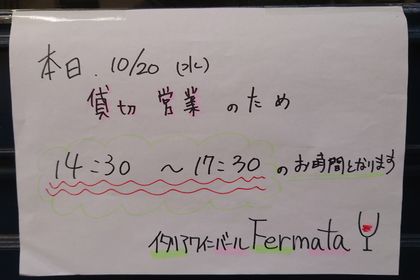 本日.10/20(水)
貸切営業のため
14:30 〜17:30のお時間となります
イタリアワインバールFermata